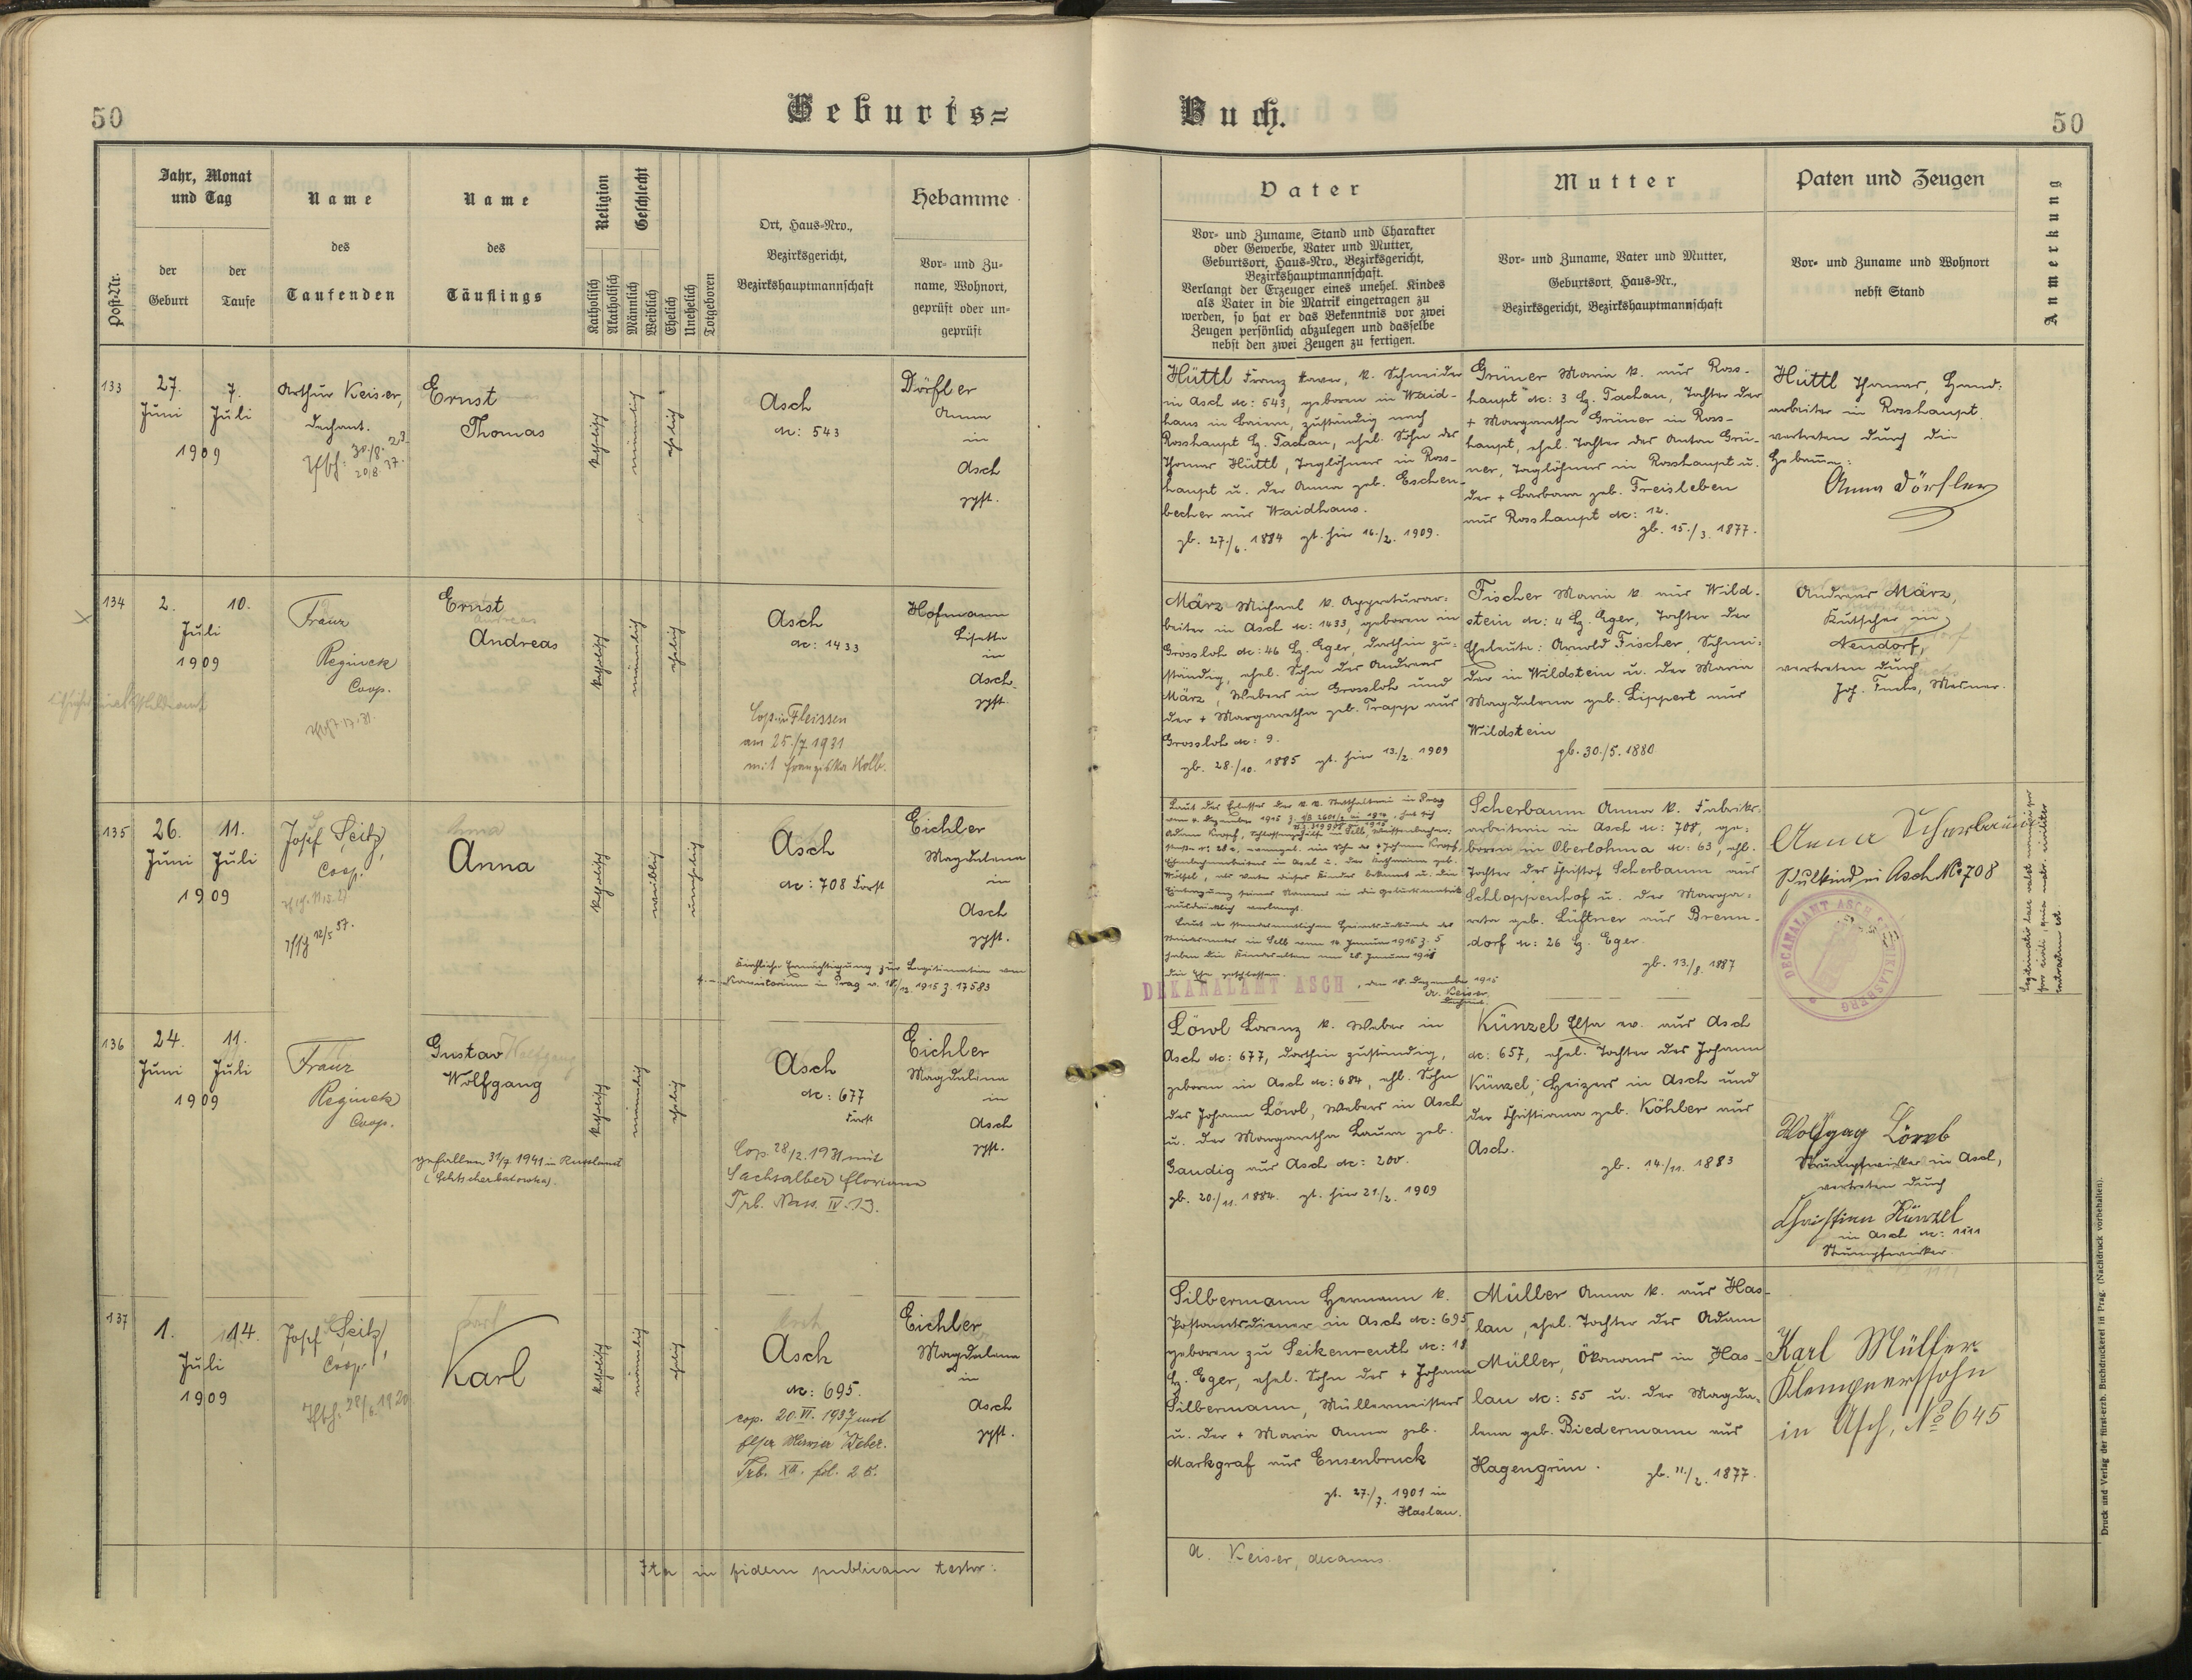 50
Geburts=
Buch.
50
Post-Nr.
Jahr, Monat
und Tag
der
Geburt
der
Taufe
Name
des
Taufenden
Name
des
Täuflings
Religion
Katholisch
Akatholisch
Geschlecht
Männlich
Weiblich
Ehelich
Unehelich
Totgeboren
Ort, Haus-Nro.,
Bezirksgericht,
Bezirkshauptmannschaft
Hebamme
Vor- und Zu-
name, Wohnort,
geprüft oder un-
geprüft
Vater
Vor- und Zuname, Stand und Charakter
oder Gewerbe, Vater und Mutter,
Geburtsort, Haus-Nro., Bezirksgericht,
Bezirkshauptmannschaft.
Verlangt der Erzeuger eines unehel. Kindes
als Vater in die Matrik eingetragen zu
werden, so hat er das Bekenntnis vor zwei
Zeugen persönlich abzulegen und dasselbe
nebst den zwei Zeugen zu fertigen.
Mutter
Vor- und Zuname, Vater und Mutter,
Geburtsort, Haus-Nr.,
Bezirksgericht, Bezirkshauptmannschaft
Paten und Zeugen
Vor- und Zuname und Wohnort
nebst Stand
Anmerkung
133
27. 7.
Juni Juli
1909
Arthur Keiser,
Dechant.
30/8. 23
20/8. 37.
Ernst
Thomas
katholisch
männlich
ehelich
Asch
Nc: 543
Dörfler
Anna
in
Asch
gpft.
Hüttl Franz Xaver, k. Schneider
in Asch Nc: 543, geboren in Waid-
haus in Baiern, zuständig nach
Rosshaupt Bz. Tachau, ehel. Sohn des
Thomas Hüttl, Taglöhners in Ross-
haupt u. der Anna geb. Eschen-
becher aus Waidhaus.
gb. 27./6. 1884 gt. hier 16./2. 1909.
Grüner Maria k. aus Ross-
haupt Nc: 3 Bz. Tachau, Tochter der
+ Margaretha Grüner in Ross-
haupt, ehel. Tochter des Anton Grü-
ner, Taglöhners in Rosshaupt u.
der + Barbara geb. Freisleben
aus Rosshaupt Nc: 12.
gb. 15./3. 1877.
Hüttl Thomas, Hand-
arbeiter in Rosshaupt
vertreten durch die
Hebamme:
Anna Dörfler
134
2. 10.
Juli
1909
Franz
Reginek
Coop.
Ernst
Andreas
katholisch
männlich
ehelich
Asch
Nc: 1433
Cop. in Fleissen
am 25./7. 1931
mit Franziska Kolb.
Hofmann
Lisette
in
Asch
gpft.
März Michael k. Appreturar-
beiter in Asch Nc: 1433, geboren in
Grossloh Nc: 46 Bz. Eger, dorthin zu-
ständig, ehel. Sohn des Andreas
März, Webers in Grossloh und
der + Margaretha geb. Trapp aus
Grossloh Nc: 9.
gb. 28./10. 1885 gt. hier 13./2. 1909
Fischer Maria k. aus Wild-
stein Nc: 4 Bz. Eger, Tochter der
Eheleute: Arnold Fischer, Schnei-
der in Wildstein u. der Maria
Magdalena geb. Lippert aus
Wildstein
gb. 30./5. 1880
Andreas März,
Kutscher in
Neudorf,
vertreten durch
Joh. Fuchs, Mesner.
135
26. 11.
Juni Juli
1909
Josef Seitz,
Coop.
12/5 37.
Anna
katholisch
weiblich
unehelich
Asch
Nc: 708 Forst
Eichler
Magdalena
in
Asch
gpft.
Kirchliche Ermächtigung zur Legitimation vom
Konsistorium in Prag v. 18./12. 1915 Z. 17583
Laut des Erlasses der k. k. Statthalterei in Prag
vom 4. Dezember 1915
Eintragung seines Namens in die Geburtsmatrik
ausdrücklich verlangt.
DEKANALAMT ASCH, am 18. Dezember 1915
A. Keiser,
Dechant.
Scherbaum Anna k. Fabriks-
arbeiterin in Asch Nc: 708, ge-
boren in Oberlohma Nc: 63, ehl.
Tochter des Christof Scherbaum aus
Schloppenhof u. der Marga-
reta geb. Lüftner aus Brenn-
dorf Nc: 26 Bz. Eger.
gb. 13./8. 1887
Anna Scherbaum
Schulkind in Asch No 708
DECANALAMT ASCH
136
24. 11.
Juni Juli
1909
Franz
Reginek
Coop.
Gustav
Wolfgang
gefallen 31/7. 1941 in Russland
(Schtscherbatowka)
katholisch
männlich
ehelich
Asch
Nc: 677
Forst
Cop. 28/2. 1931 mit
Sachsalber Floriana
Trb. Nass. IV. 13.
Eichler
Magdalena
in
Asch
gpft.
Löwl Lorenz k. Weber in
Asch Nc: 677, dorthin zuständig,
geboren in Asch Nc: 684, ehl. Sohn
des Johann Löwl, Webers in Asch
u. der Margaretha Laura geb.
Gaudig aus Asch Nc: 200.
gb. 20./11. 1884. gt. hier 21./2. 1909
Künzel Elsa ev. aus Asch
Nc: 657, ehel. Tochter des Johann
Künzel, Heizers in Asch und
der Christiana geb. Köhler aus
Asch.
gb. 14./11. 1883
Wolfgag Löwl
Strumpfwirker in Asch,
vertreten durch
Christian Künzel
in Asch Nc: 1111
Strumpfwirker.
137
1. 14.
Juli
1909
Josef Seitz,
Coop.
28/6. 1920
Karl
katholisch
männlich
ehelich
Asch
Nc: 695.
cop. 20. VI. 1937 mit
Elsa Maria Weber.
Trb. XII. fol. 25.
Eichler
Magdalena
in
Asch
gpft.
Silbermann Hermann k.
Postamtsdiener in Asch Nc: 695
geboren zu Seikenreuth Nc: 18
Bz. Eger, ehel. Sohn des + Johann
Silbermann, Müllermeisters
u. der + Maria Anna geb.
Markgraf aus Ensenbruck
gt. 27./7. 1901 in
Haslau.
Müller Anna k. aus Has-
lau, ehel. Tochter des Adam
Müller, Ökonoms in Has-
lau Nc: 55 u. der Magda-
lena geb. Biedermann aus
Hagengrün.
gb. 11./2. 1877.
Karl Müller
Klempnerssohn
in Asch, No 645
Ita in fidem publicam testor:
A. Keiser, decanus.
Druck und Verlag der fürst-erzb. Buchdruckerei in Prag. (Nachdruck vorbehalten).